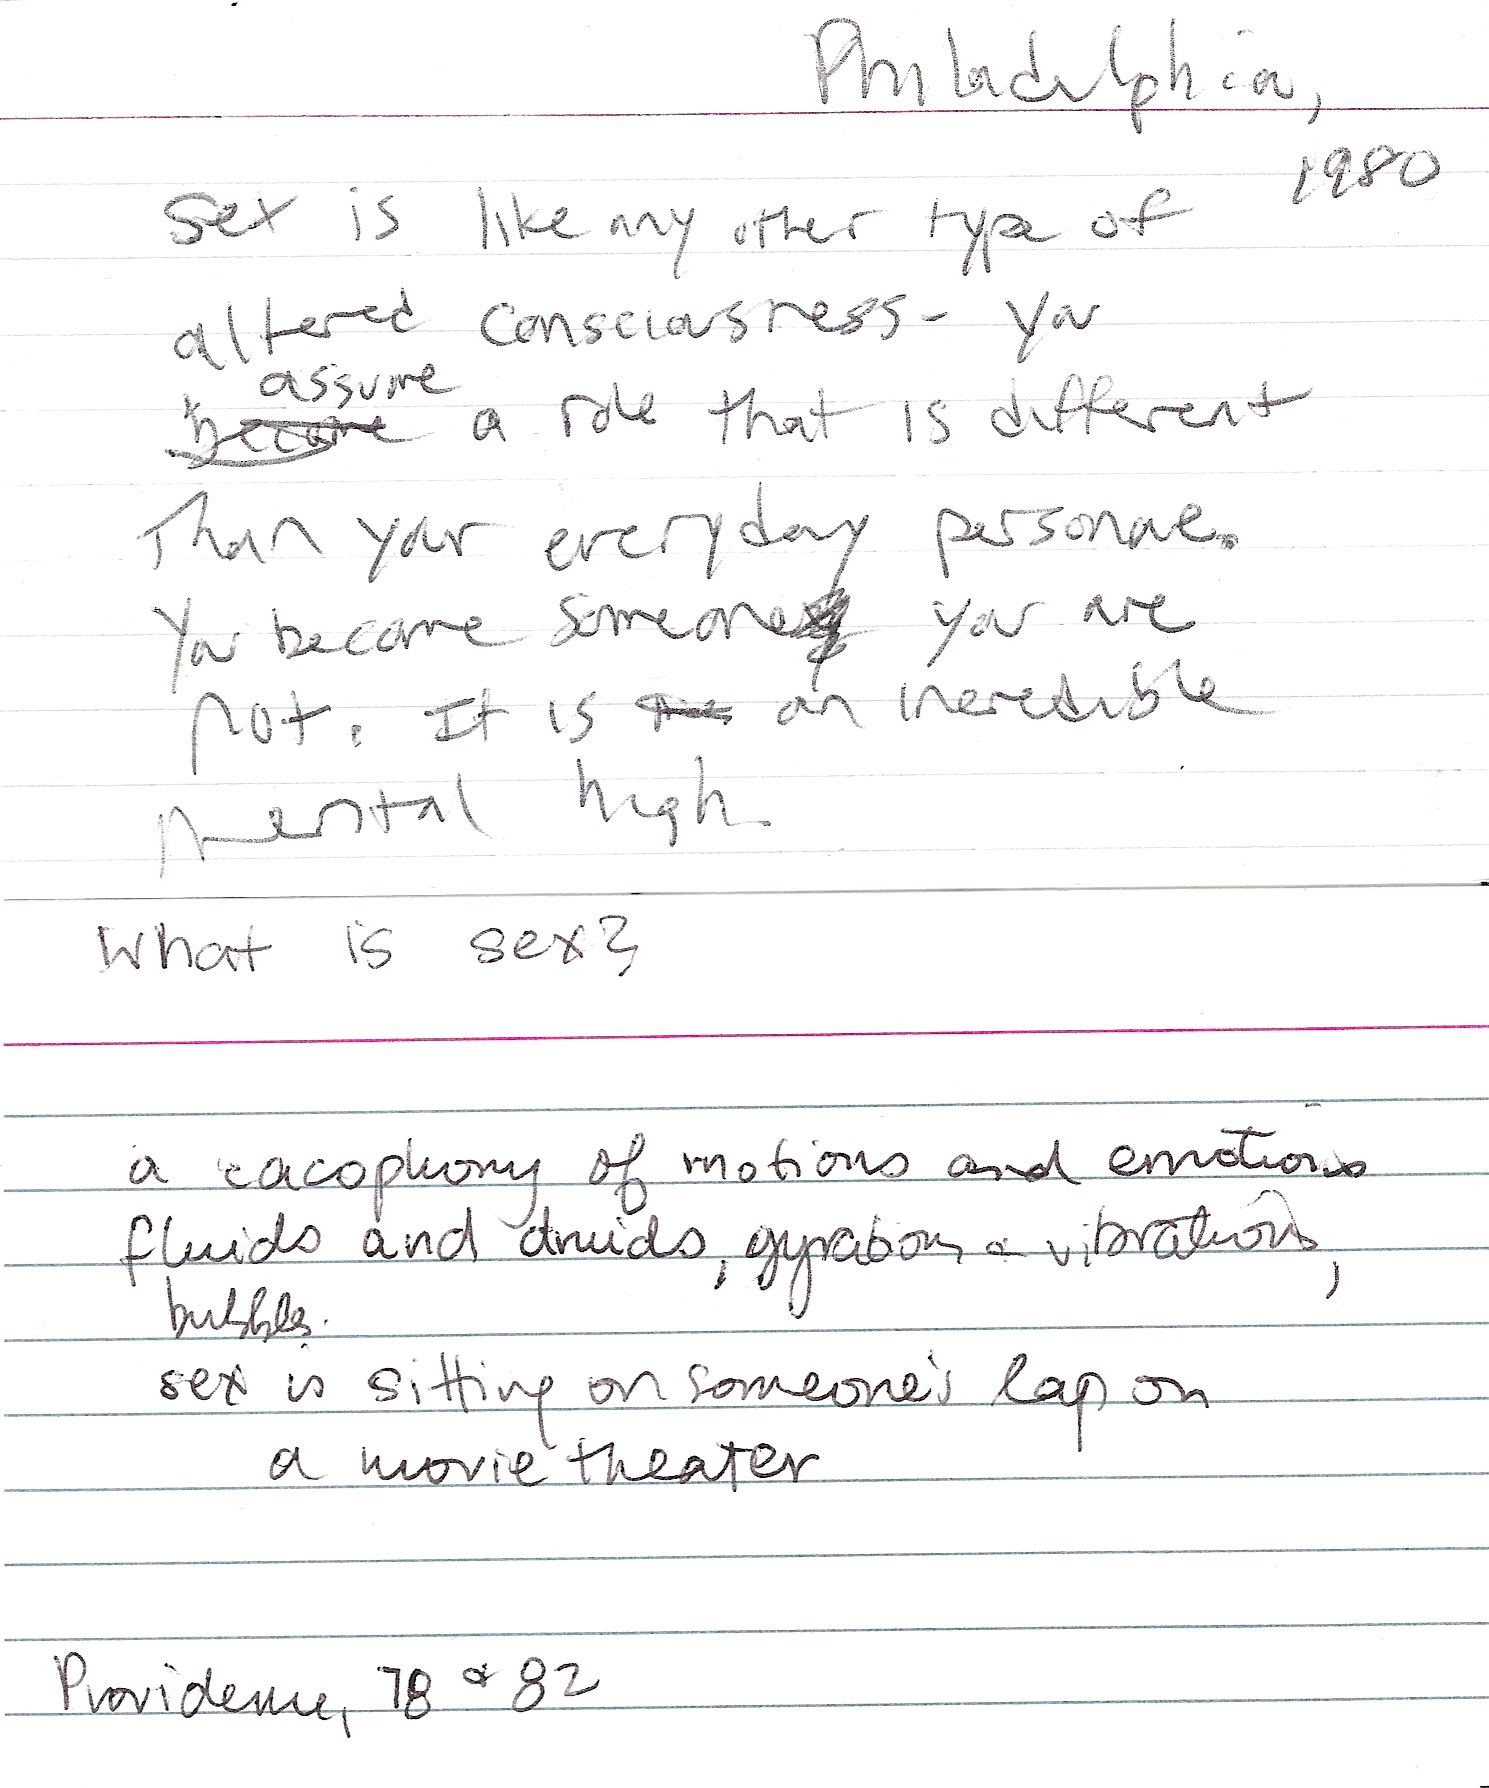 Philadelphia,
1980
Sex is like any other type of
altered consciousness - you
assume
become a role that is different
Than your everyday personae.
You become someone you are
not. It is an incredible
mental high.
What is sex?
a cacophony of motions and emotions
fluids and druids, gyrations & vibrations,
bubbles.
sex is sitting on someone's lap on
a movie theater
Providence, 78 & 82